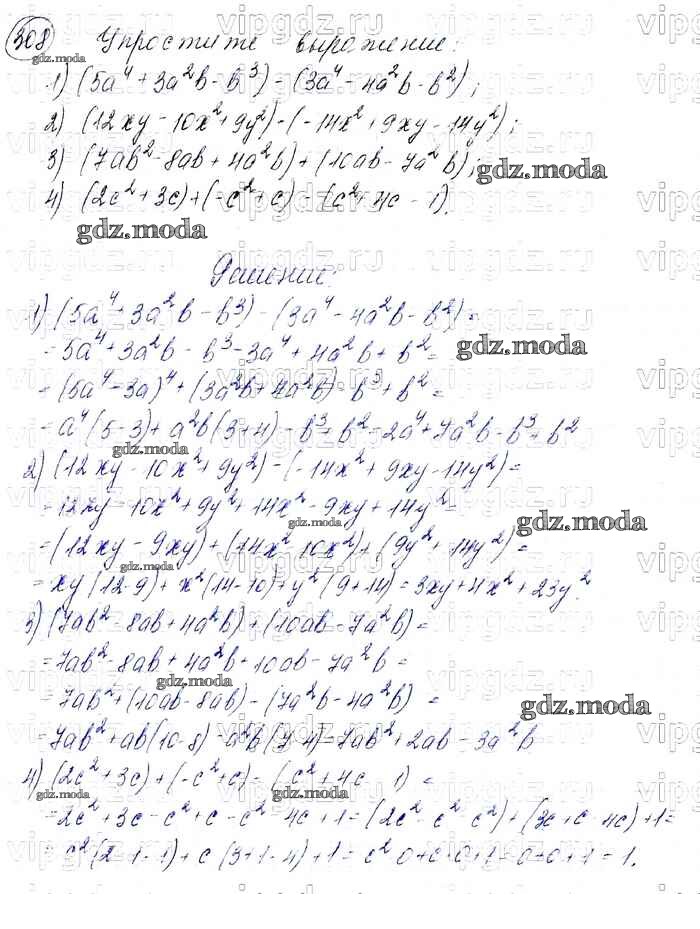 308 Упростите выражение:
1) (5a⁴ + 3a²b - b³) - (3a⁴ - 4a²b - b²);
2) (12xy - 10x² + 9y²) - (-14x² + 9xy - 14y²);
3) (7ab² - 8ab + 4a²b) + (10ab - 7a²b);
4) (2c² + 3c) + (-c² + c) - (c² + 4c - 1).
Решение:
1) (5a⁴ + 3a²b - b³) - (3a⁴ - 4a²b - b²) =
= 5a⁴ + 3a²b - b³ - 3a⁴ + 4a²b + b² =
= (5a⁴ - 3a)⁴ + (3a²b + 4a²b) - b³ + b² =
= a⁴(5-3) + a²b(3+4) - b³ + b² = 2a⁴ + 7a²b - b³ + b²
2) (12xy - 10x² + 9y²) - (-14x² + 9xy - 14y²) =
= 12xy - 10x² + 9y² + 14x² - 9xy + 14y² =
= (12xy - 9xy) + (14x² - 10x²) + (9y² + 14y²) =
= xy(12-9) + x²(14-10) + y²(9+14) = 3xy + 4x² + 23y².
3) (7ab² - 8ab + 4a²b) + (10ab - 7a²b) =
= 7ab² - 8ab + 4a²b + 10ab - 7a²b =
= 7ab² + (10ab - 8ab) - (7a²b - 4a²b) =
= 7ab² + ab(10-8) - a²b(7-4) = 7ab² + 2ab - 3a²b
4) (2c² + 3c) + (-c² + c) - (c² + 4c - 1) =
= 2c² + 3c - c² + c - c² - 4c + 1 = (2c² - c² - c²) + (3c + c - 4c) + 1 =
= c²(2-1-1) + c(3+1-4) + 1 = c²·0 + c·0 + 1 = 0 + 0 + 1 = 1.
gdz.moda
vipgdz.ru